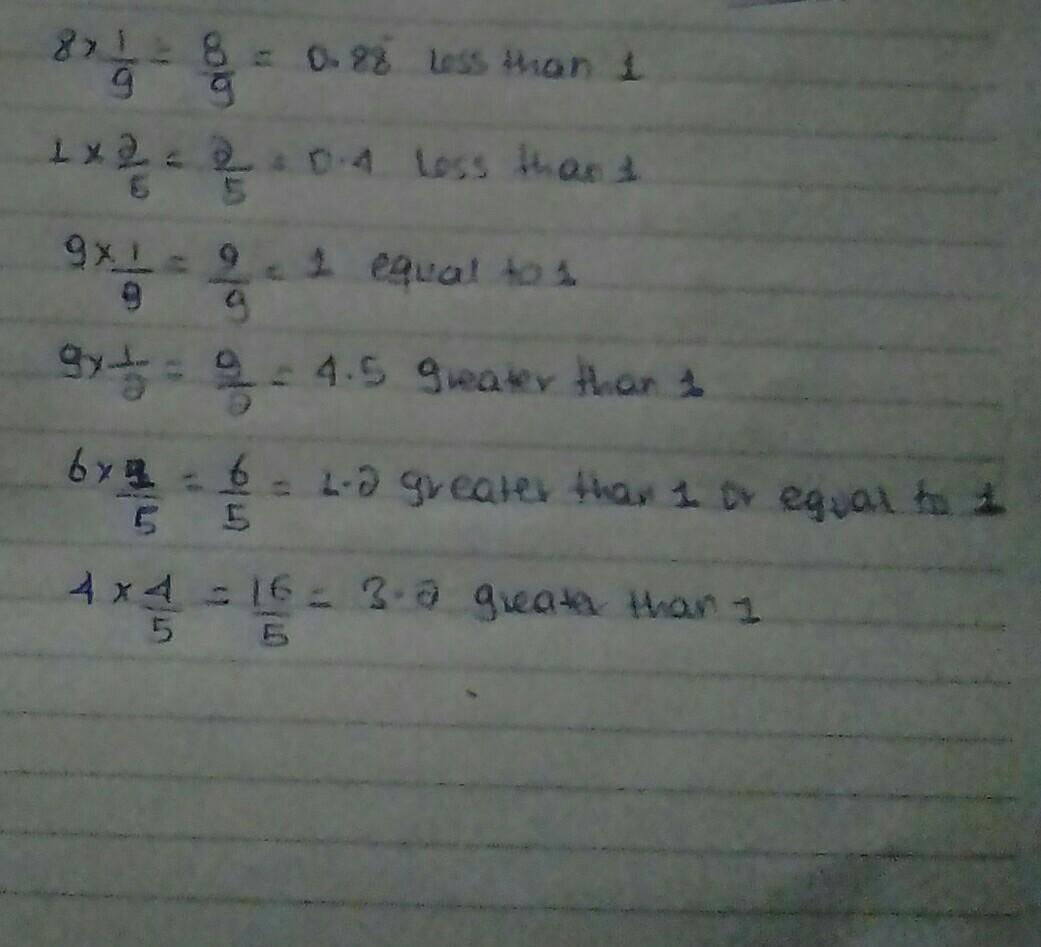 8 × 1/9 = 8/9 = 0.88 less than 1
1 × 2/5 = 2/5 = 0.4 less than 1
9 × 1/9 = 9/9 = 1 equal to 1
9 × 1/2 = 9/2 = 4.5 greater than 1
6 × 1/5 = 6/5 = 1.2 greater than 1 or equal to 1
4 × 4/5 = 16/5 = 3.2 greater than 1